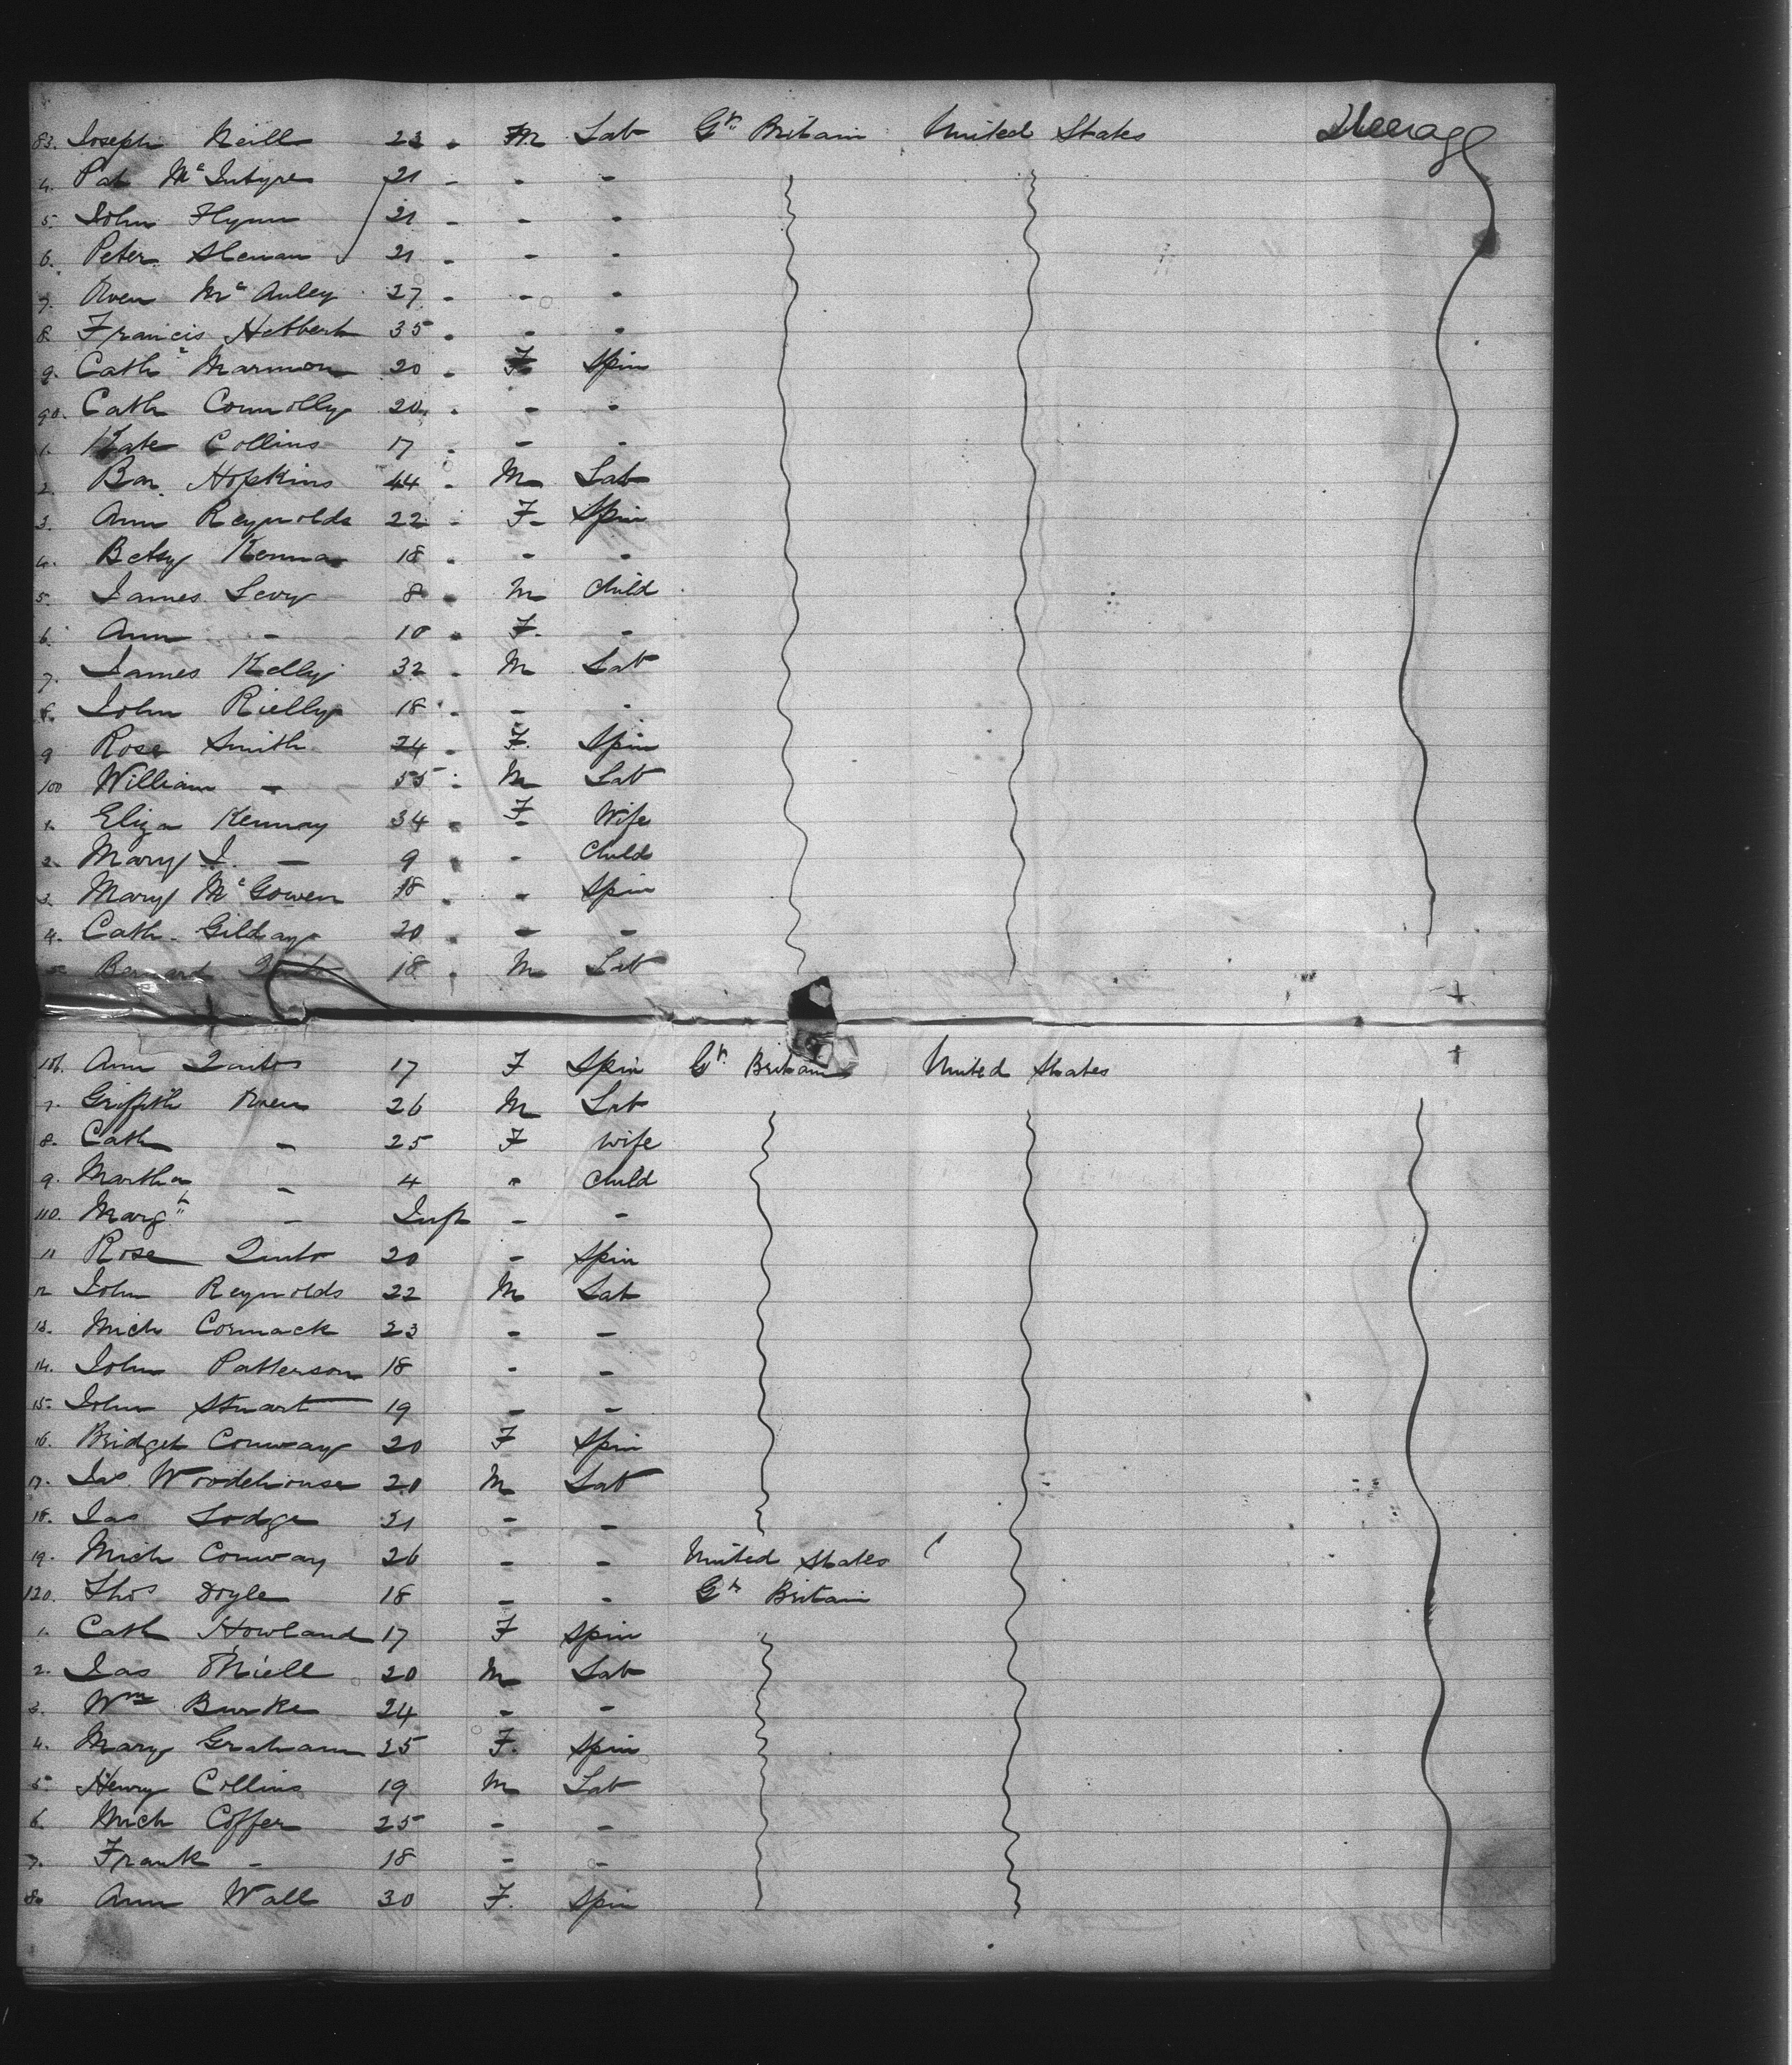 83. Joseph Neill 23 - M Lab Gt. Britain United States Steerage
4. Pat McIntyre 21 - - -
5. John Flynn 21 - - -
6. Peter 21 - - -
7. Owen McAuley 27 - - -
8. Francis Hebbert 35 - - -
9. Cath Marmon 20 - F Spin
90. Cath Connolly 20 - - -
1. Kate Collins 17 - - -
2. Bar. Hopkins 44 - M Lab
3. Ann Reynolds 22 - F Spin
4. Betsy Kenna 18 - - -
5. James Levy 8 - M Child
6. Ann - 10 - F -
7. James Kelly 32 - M Lab
8. John Rielly 18 - - -
9 Rose Smith 24 - F Spin
100 William - 55 - M Lab
1. Eliza Kennay 34 - F Wife
2. Mary J. - 9 - - Child
3. Mary McGowen 18 - - Spin
4. Cath. Gilday 20 - - -
5 Bernard 18 - M Lab
106. Ann 17 F Spin Gt. Britain United States
7. Griffith Owen 26 M Lab
8. Cath - 25 F Wife
9. Martha - 4 " Child
110. Margt - Inft - -
11 Rose 20 - Spin
12 John Reynolds 22 M Lab
13. Mich Cormack 23 - -
14. John Patterson 18 - -
15. John Stuart 19 - -
16. Bridget Conway 20 F Spin
17. Jas. Woodehouse 20 M Lab
18. Jas Lodge 21 - -
19. Mich Conway 26 - - United States
120. Thos Doyle 18 - - Gt Britain
1. Cath Howland 17 F Spin
2. Jas O'Niell 20 M Lab
3. Wm Burke 24 - -
4. Mary Graham 25 F. Spin
5. Henry Collins 19 M Lab
6. Mich Coffer 25 - -
7. Frank - 18 - -
8. Ann Wall 30 F. Spin